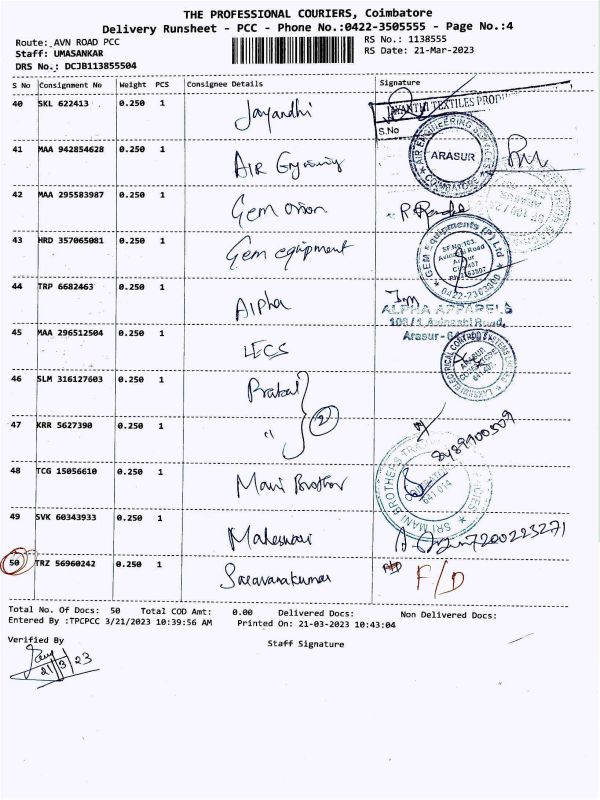 THE PROFESSIONAL COURIERS, Coimbatore
Delivery Runsheet - PCC - Phone No.:0422-3505555 - Page No.:4
Route: AVN ROAD PCC RS No.: 1138555
Staff: UMASANKAR RS Date: 21-Mar-2023
DRS No.: DCJB113855504
S No Consignment No Weight PCS Consignee Details Signature
40 SKL 622413 0.250 1 Jayandhi JAYANTHI TEXTILES
S.No
41 MAA 942854628 0.250 1 AIR AIR ENGINEERING SERVICES ARASUR COIMBATORE
42 MAA 295583987 0.250 1 Gem
43 HRD 357065081 0.250 1 Gem equipment GEM Equipments (P) Ltd
SF.No:103,
Avinashi Road
Arasur
0422-2363800
44 TRP 6682463 0.250 1 Alpha ALPHA APPARELS
108/1, Avinashi Road,
Arasur-6
45 MAA 296512504 0.250 1 LECS
46 SLM 316127603 0.250 1 2
47 KRR 5627390 0.250 1 " 8489900509
48 TCG 15056610 0.250 1 Mani Brother SRI MANI BROTHERS
641 014
49 SVK 60343933 0.250 1 Maheswari 7200223271
50 TRZ 56960242 0.250 1 Saravanakumar F/D
Total No. Of Docs: 50 Total COD Amt: 0.00 Delivered Docs: Non Delivered Docs:
Entered By :TPCPCC 3/21/2023 10:39:56 AM Printed On: 21-03-2023 10:43:04
Verified By Staff Signature
21/3/23